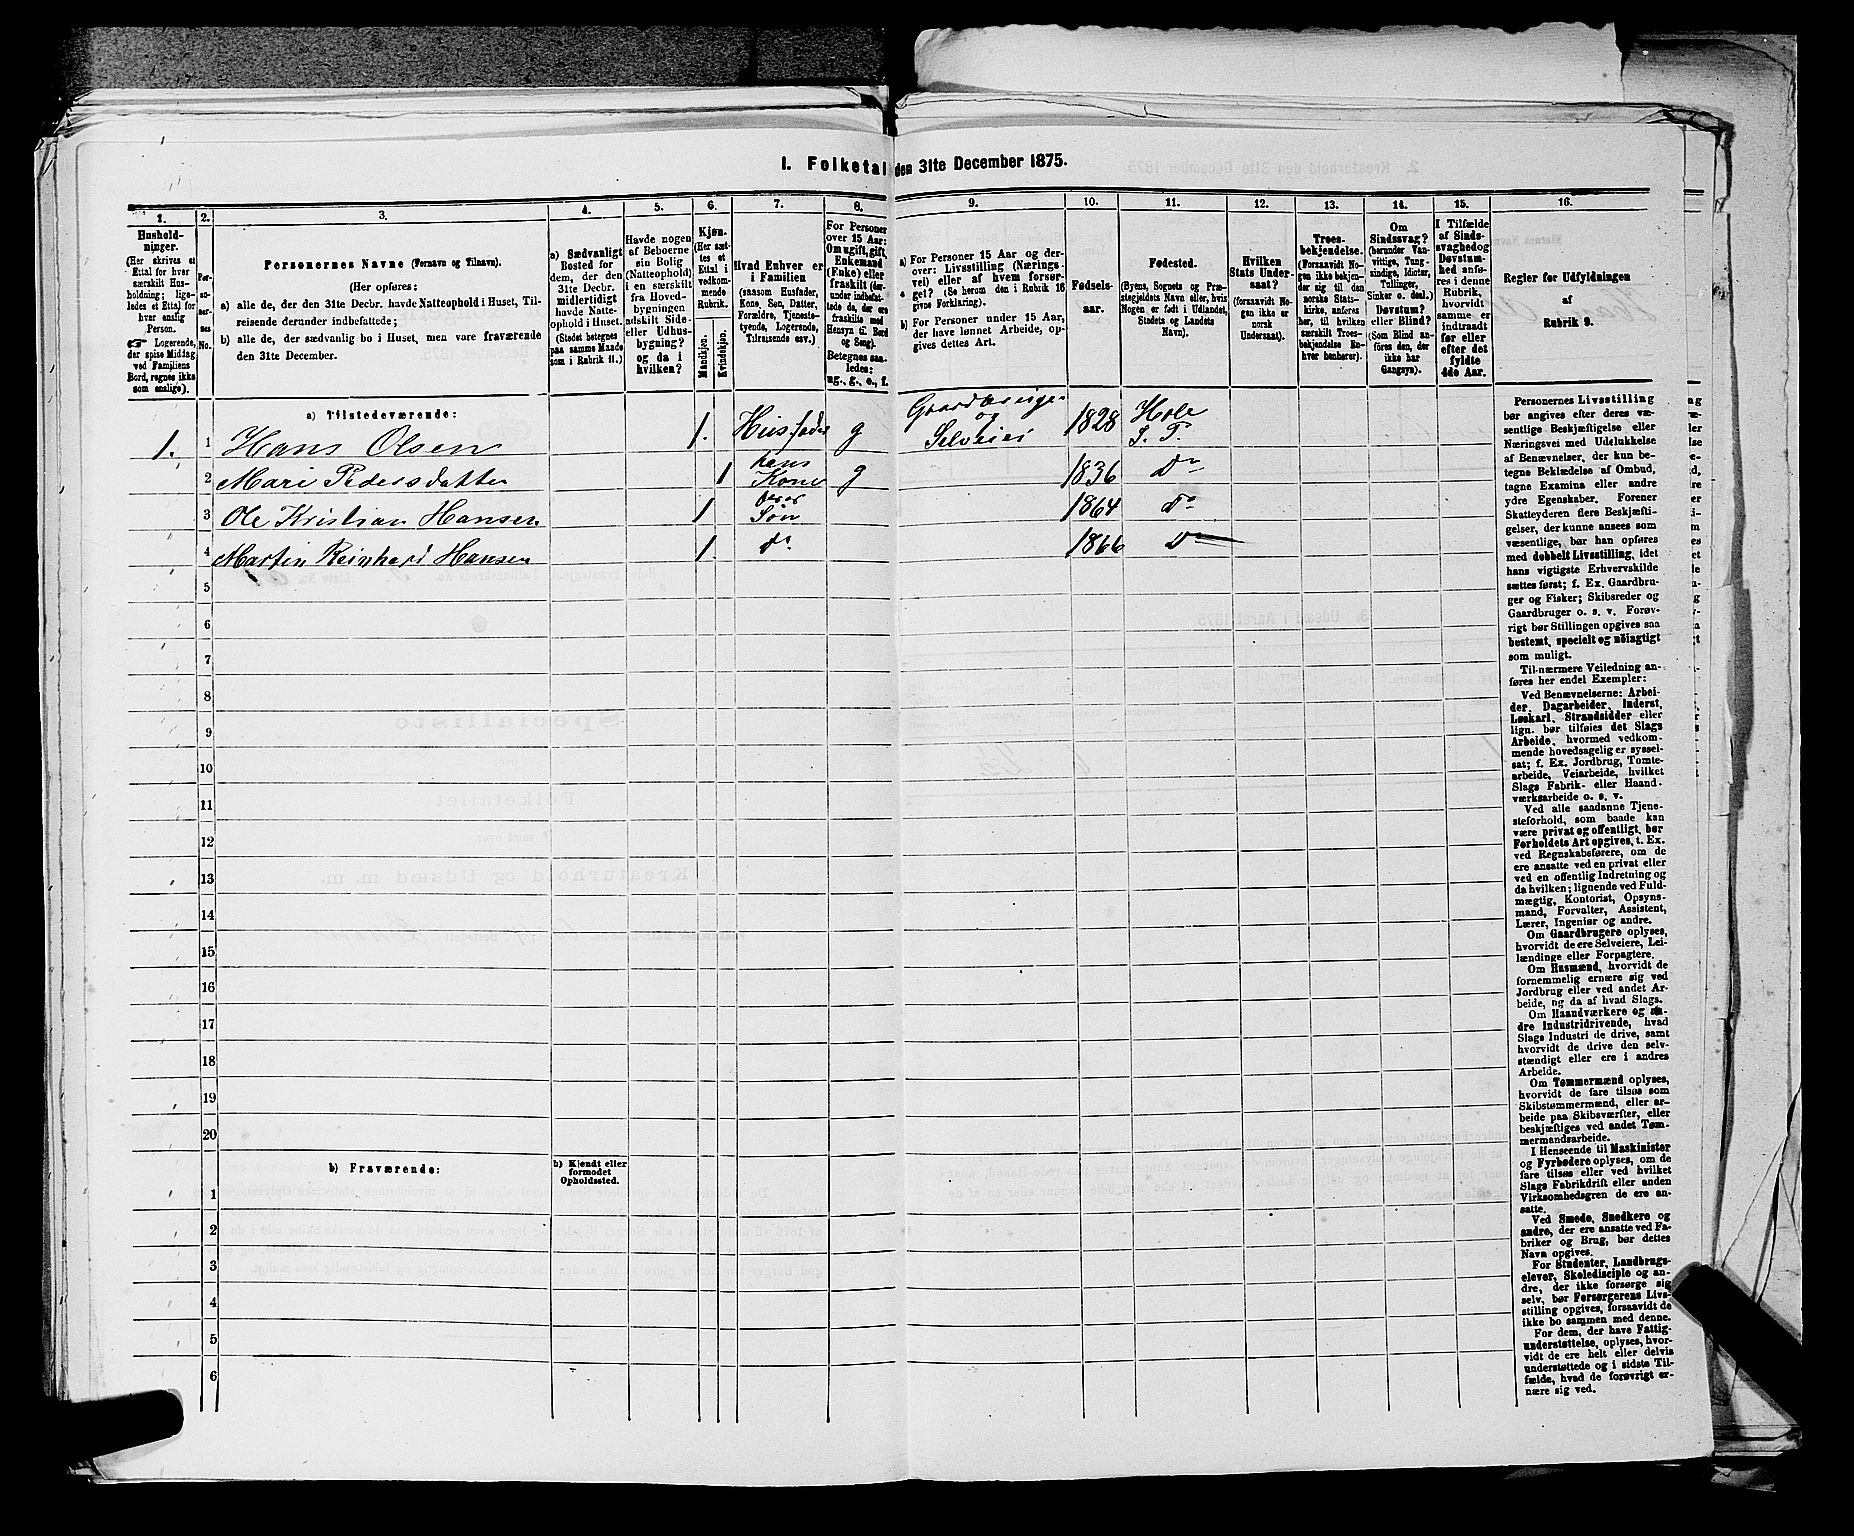 I. Folketal den 31te December 1875.
1.
2.
3.
4.
5.
6.
7.
8.
9.
10.
11.
12.
13.
14.
15.
16.
Hushold-
ninger.
(Her skrives et
Ettal for hver
særskilt Hus-
holdning; lige-
ledes et Ettal for
hver enslig
Person.
☞ Logerende,
der spise Middag
ved Familiens
Bord, regnes ikke
som enslige).
Per-
so-
ner-
nes
No.
Personernes Navne (Fornavn og Tilnavn).
(Her opføres:
a) alle de, der den 31te Decbr. havde Natteophold i Huset, Til-
reisende derunder indbefattede;
b) alle de, der sædvanlig bo i Huset, men vare fraværende
den 31te December.
a) Sædvanligt
Bosted for
dem, der den
31te Decbr.
midlertidigt
havde Natte-
ophold i Huset.
(Stedet betegnes
paa samme Maade
som i Rubrik 11.)
Havde nogen
af Beboerne
sin Bolig
(Natteophold)
i en særskilt
fra Hoved-
bygningen
adskilt Side-
eller Udhus-
bygning?
og da i
hvilken?
Kjøn.
(Her sæt-
tes et
Ettal i
vedkom-
mende
Rubrik.
Mandkjøn.
Kvindekjøn.
Hvad Enhver er
i Familien
(saasom Husfader,
Kone, Søn, Datter,
Forældre, Tjeneste-
tyende, Logerende,
Tilreisende osv.)
For Personer
over 15 Aar:
Om ugift, gift,
Enkemand
(Enke) eller
fraskilt (der-
under indbefat-
tede de, der ere
fraskilte med
Hensyn til Bord
og Seng).
Betegnes saa-
ledes:
ug., g., e., f.
a) For Personer 15 Aar og der-
over: Livsstilling (Nærings-
vei) eller af hvem forsør-
get? (Se herom den i Rubrik 16
givne Forklaring).
b) For Personer under 15 Aar,
der have lønnet Arbeide, op-
gives dettes Art.
Fødsels-
aar.
Fødested.
(Byens, Sognets og Præ-
stegjeldets Navn eller, hvis
Nogen er født i Udlandet,
Stedets og Landets
Navn).
Hvilken
Stats Under-
saat?
(forsaavidt No-
gen ikke er
norsk
Undersaat).
Troes-
bekjendelse.
(Forsaavidt No-
gen ikke bekjen-
der sig til den
norske Stats-
kirke, anføres
her, til hvilken
særskilt Troes-
bekjendelse En-
hver henhører).
Om
Sindssvag?
(herunder Van-
vittige, Tung-
sindige, Idioter,
Tullinger,
Sinker o. desl.)
Døvstum?
eller Blind?
(Som Blind an-
føres den, der
ikke har
Gangsyn).
I Tilfælde
af Sinds-
svaghed og
Døvstum-
hed anfø-
res i denne
Rubrik,
hvorvidt
samme er
indtraadt
før eller
efter det
fyldte
4de Aar.
Regler for Udfyldningen
af
Rubrik 9.
a) Tilstedeværende:
1. 1 Hans Olsen 1. Husfader g Gaardbruger og Selveier 1828 Hole S. P.
2 Mari Pedersdatter 1 hans Kone g 1836 Do
3 Ole Kristian Hansen 1 deres Søn 1864 do
4 Martin Reinhard Hansen 1. do. 1866 Do
5
6
7
8
9
10
11
12
13
14
15
16
17
18
19
20
b) Fraværende:
b) Kjendt eller
formodet
Opholdssted.
1
2
3
4
5
6
Personernes Livsstilling
bør angives efter deres væ-
sentlige Beskjæftigelse eller
Næringsvei med Udelukkelse
af Benævnelser, der kun be-
tegne Beklædelse af Ombud,
tagne Examina eller andre
ydre Egenskaber. Forener
Skatteyderen flere Beskjæfti-
gelser, der kunne ansees som
væsentlige, bør han opføres
med dobbelt Livsstilling, idet
hans vigtigste Erhvervskilde
sættes først; f. Ex. Gaardbru-
ger og Fisker; Skibsreder og
Gaardbruger o. s. v. Forøv-
rigt bør Stillingen opgives saa
bestemt, specielt og nøiagtigt
som muligt.
Til nærmere Veiledning an-
føres her endel Exempler:
Ved Benævnelserne: Arbei-
der, Dagarbeider, Inderst,
Løskarl, Strandsidder eller
lign. bør tilføies det Slags
Arbeide, hvormed vedkom-
mende hovedsagelig er syssel-
sat; f. Ex. Jordbrug, Tomte-
arbeide, Veiarbeide, hvilket
Slags Fabrik- eller Haand-
værksarbeide o. s. v.
Ved alle saadanne Tjene-
steforhold, som baade kan
være privat og offentligt, bør
Forholdets Art opgives, t. Ex.
ved Regnskabsførere, om de
ere ansatte ved en privat eller
ved en offentlig Indretning og
da hvilken; lignende ved Fuld-
mægtig, Kontorist, Opsyns-
mand, Forvalter, Assistent,
Lærer, Ingeniør og andre.
Om Gaardbrugere oplyses,
hvorvidt de ere Selveiere, Lei-
lændinge eller Forpagtere.
Om Husmænd, hvorvidt de
fornemmelig ernære sig ved
Jordbrug eller ved andet Ar-
beide, og da af hvad Slags.
Om Haandværkere og an-
dre Industridrivende, hvad
Slags Industri de drive, samt
hvorvidt de drive den selv-
stændigt eller ere i andres
Arbeide.
Om Tømmermænd oplyses,
hvorvidt de fare tilsøs som
Skibstømmermænd, eller ar-
beide paa Skibsværfter, eller
beskjæftiges ved andet Tøm-
mermandsarbeide.
I Henseende til Maskinister
og Fyrbødere oplyses, om de
fare tilsøs eller ved hvilket
Slags Fabrikdrift eller anden
Virksomhedsgren de ere an-
satte.
Ved Smede, Snedkere og
andre, der ere ansatte ved Fa-
briker og Brug, bør dettes
Navn opgives.
For Studenter, Landbrugs-
elever, Skoledisciple og an-
dre, der ikke forsørge sig
selv, bør Forsørgerens Livs-
stilling opgives, forsaavidt de
ikke bo sammen med denne.
For dem, der have Fattig-
understøttelse, oplyses, hvor-
vidt de ere helt eller delvis
understøttede og i sidste Til-
fælde, hvad de forøvrigt er-
nære sig ved.